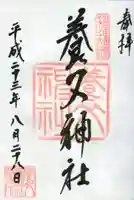 奉拝
養父神社
平成二十三年八月二十八日